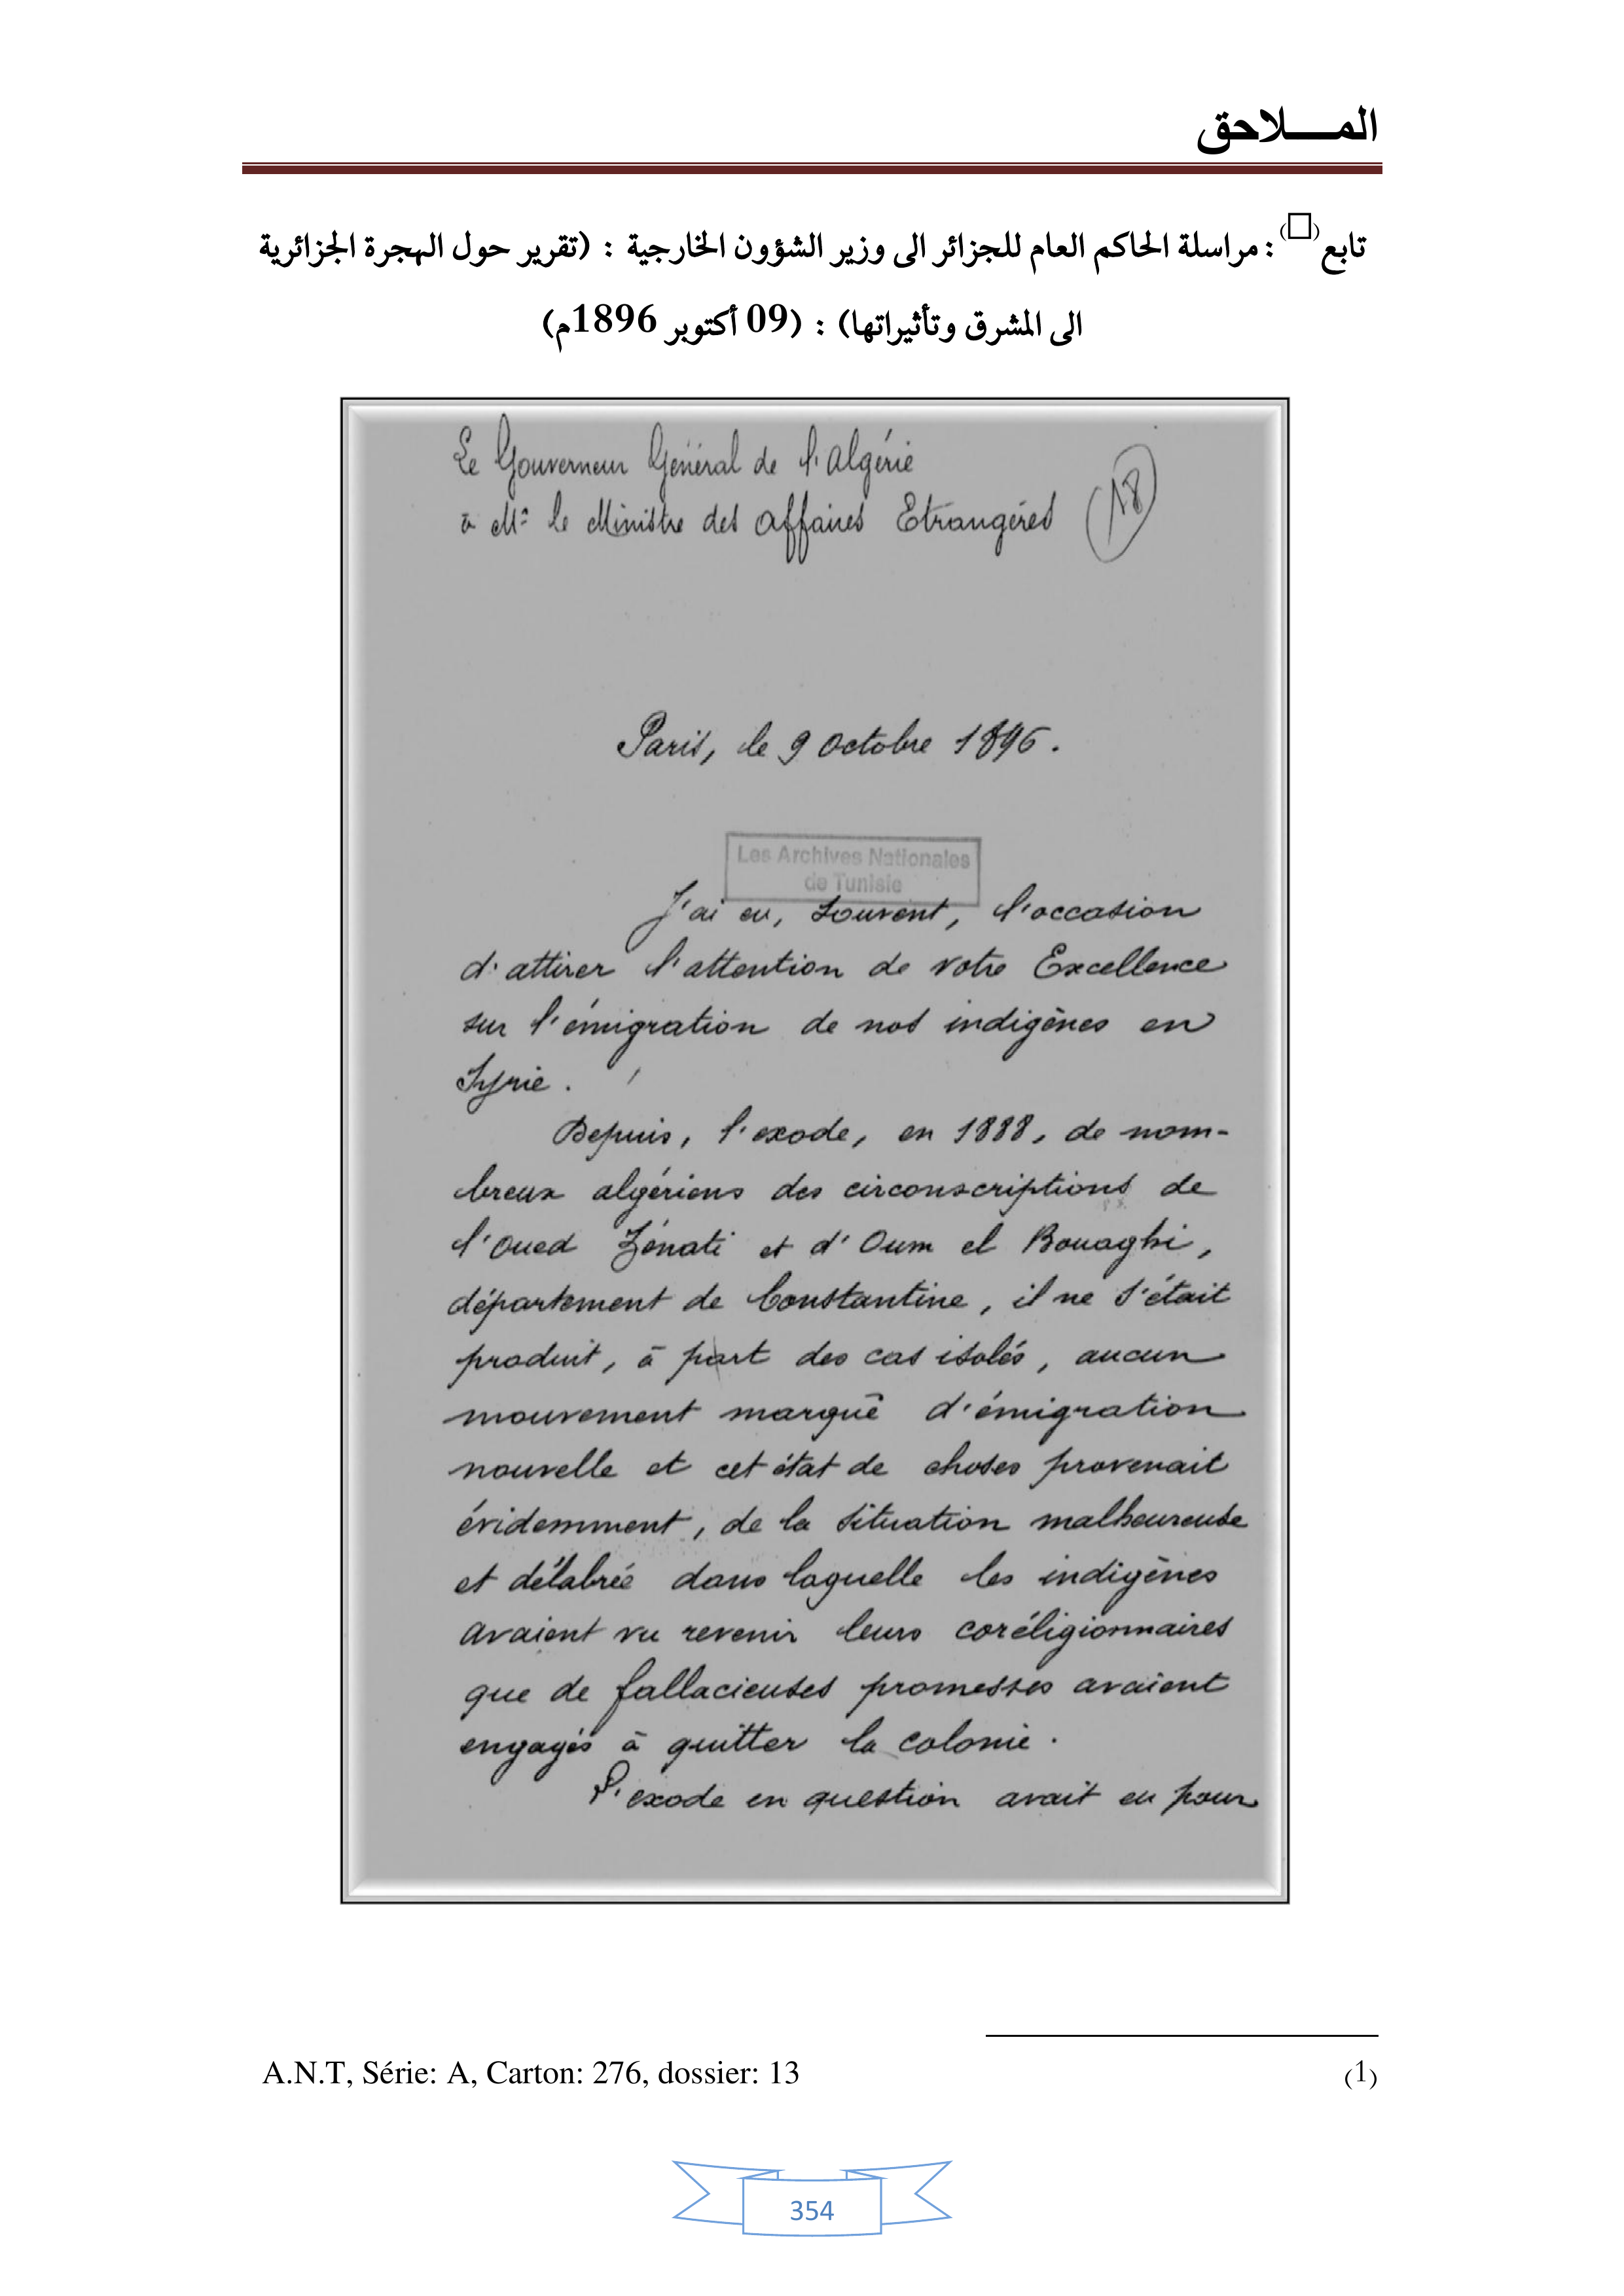 المـــــلاحق
تابع(□): مراسلة الحاكم العام للجزائر الى وزير الشؤون الخارجية : (تقرير حول الهجرة الجزائرية
الى المشرق وتأثيراتها) : (09 أكتوبر 1896م)
Le Gouverneur Général de l'Algérie
à Mr le Ministre des Affaires Etrangères
(18)
Paris, le 9 Octobre 1896.
Les Archives Nationales
de Tunisie
J'ai eu, souvent, l'occasion
d'attirer l'attention de votre Excellence
sur l'émigration de nos indigènes en
Syrie.
Depuis, l'exode, en 1888, de nom-
breux algériens des circonscriptions de
l'Oued Zénati et d'Oum el Bouaghi,
département de Constantine, il ne s'était
produit, à part des cas isolés, aucun
mouvement marqué d'émigration
nouvelle et cet état de choses provenait
évidemment, de la situation malheureuse
et délabrée dans laquelle les indigènes
avaient vu revenir leurs coréligionnaires
que de fallacieuses promesses avaient
engagés à quitter la colonie.
L'exode en question avait eu pour
A.N.T, Série: A, Carton: 276, dossier: 13 (1)
354